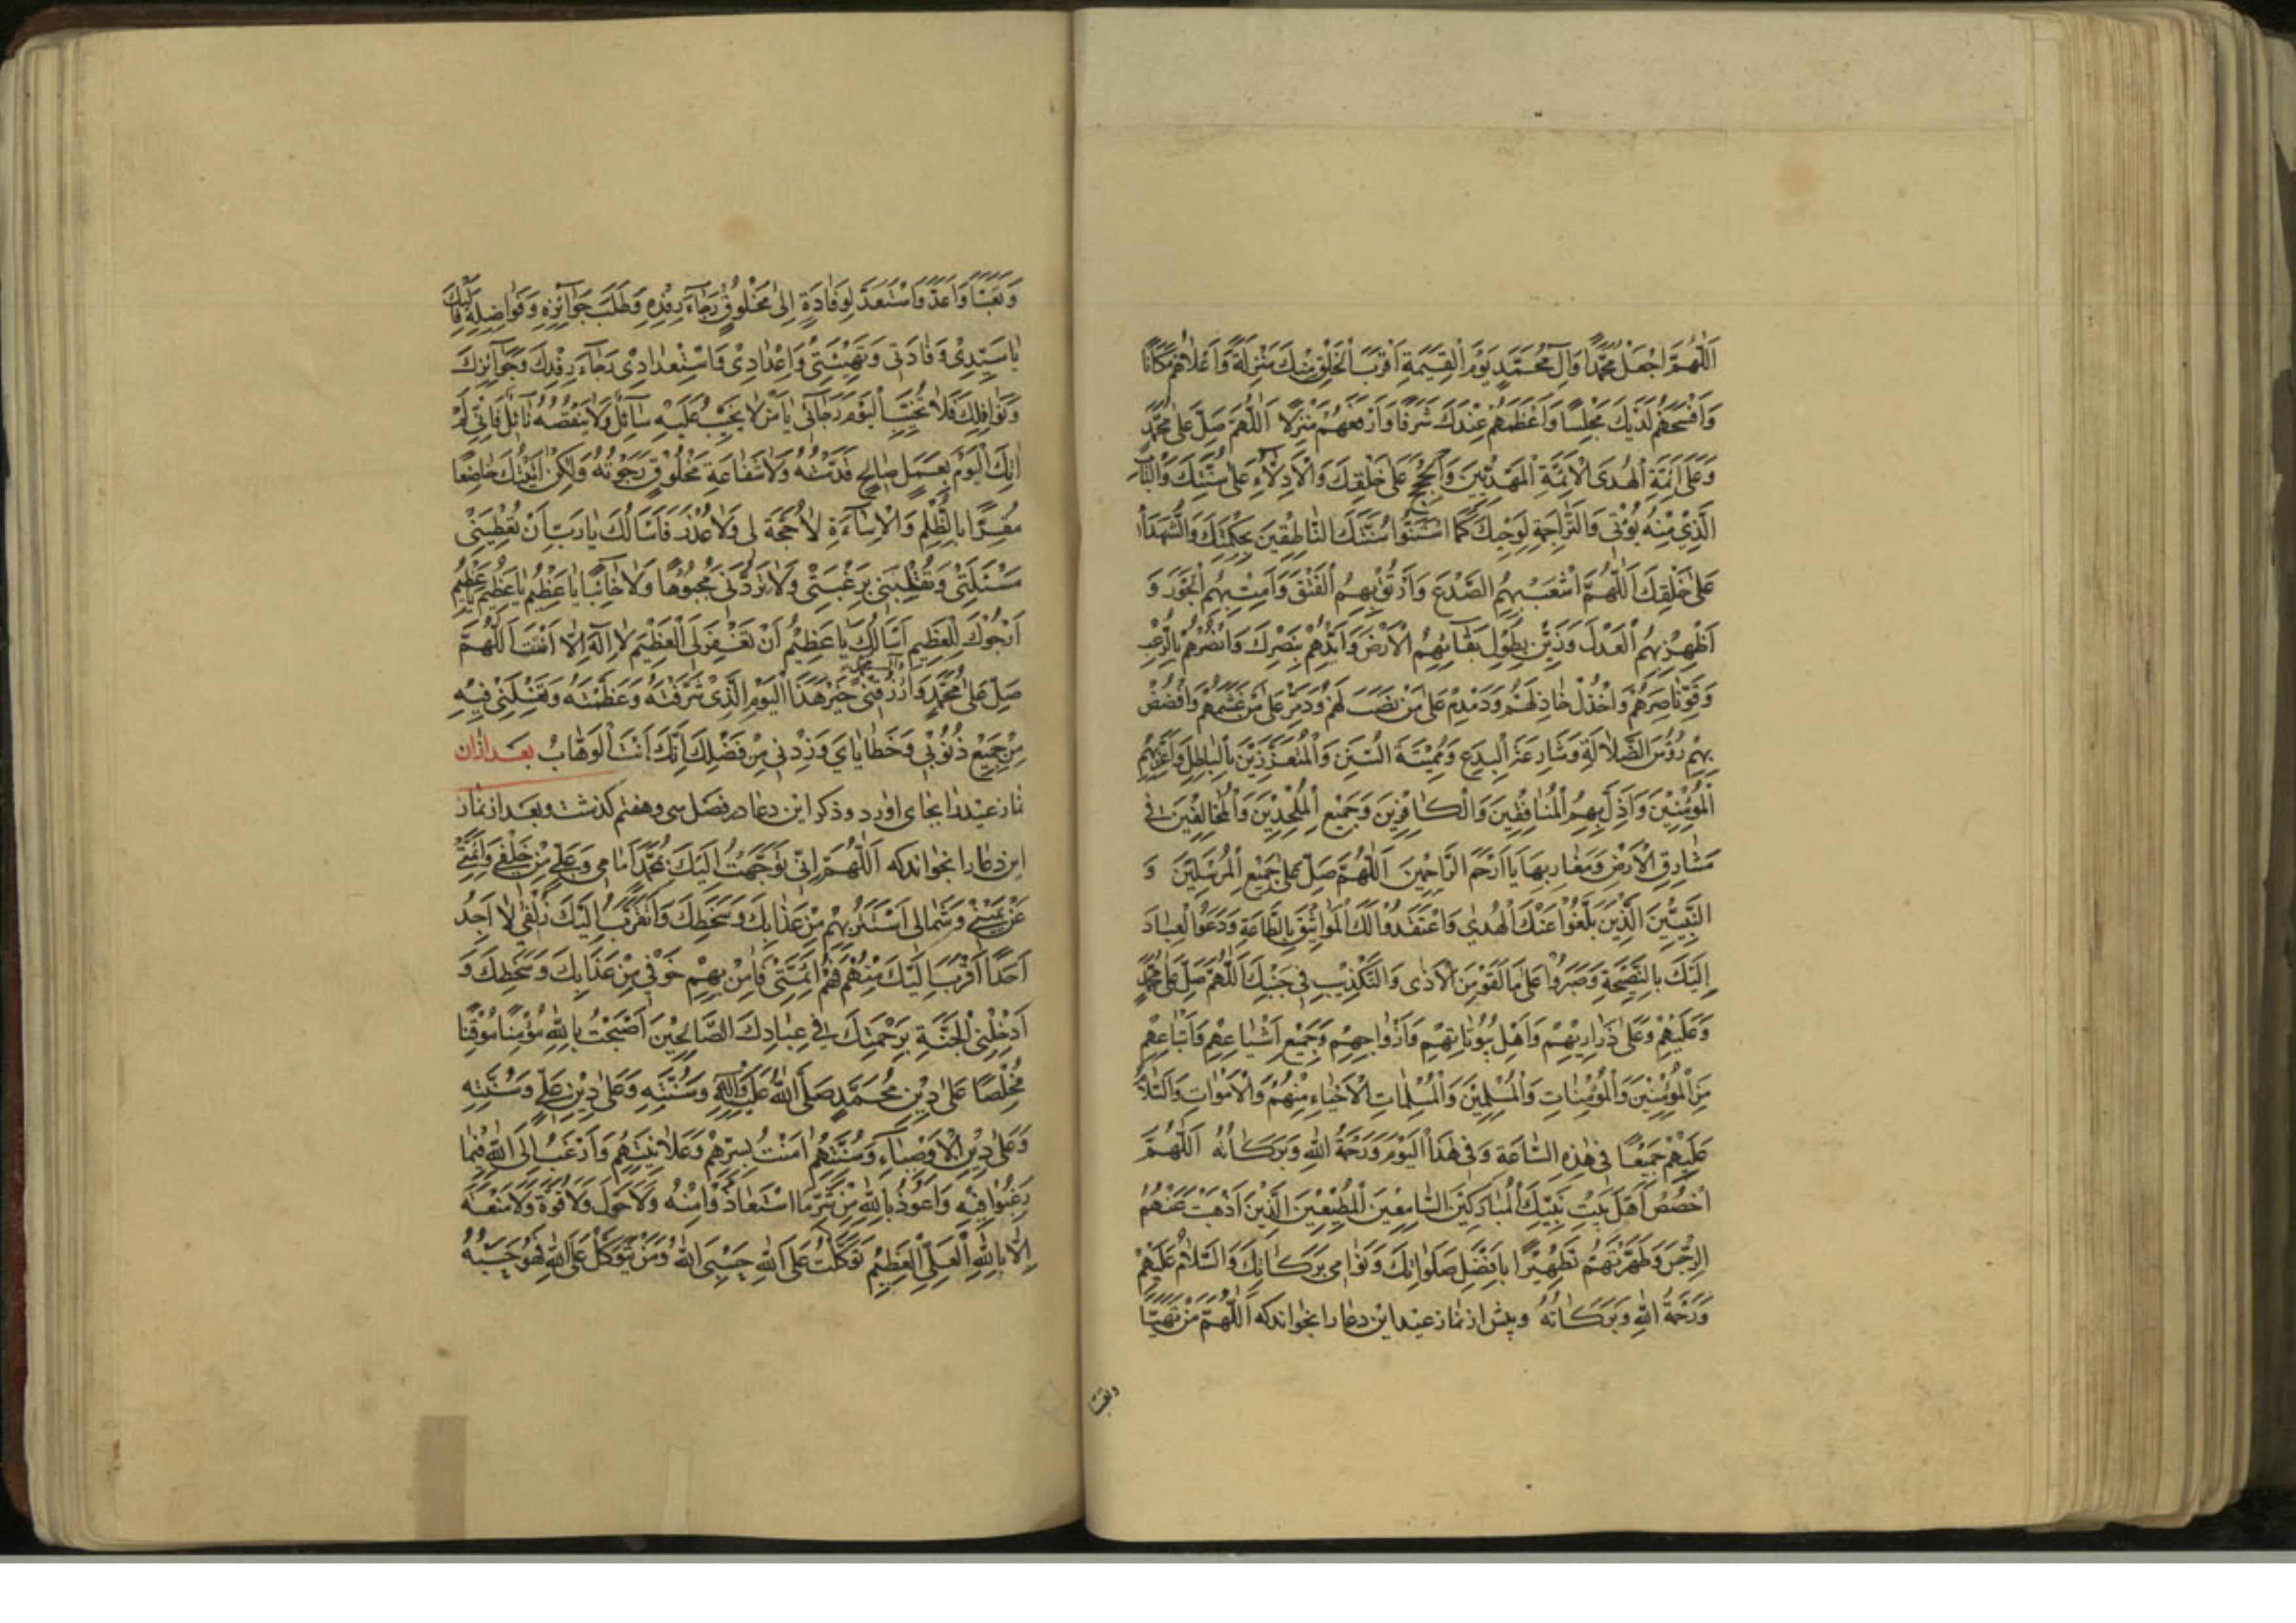 اَللّٰهُمَّ اجْعَلْ مُحَمَّدًا وَآلَ مُحَمَّدٍ يَوْمَ الْقِيٰمَةِ اَقْرَبَ الْخَلْقِ مِنْكَ مَنْزِلَةً وَاَعْلَاهُمْ مَكَانًا
وَاَفْسَحَهُمْ لَدَيْكَ مَجْلِسًا وَاَعْظَمَهُمْ عِنْدَكَ شَرَفًا وَاَرْفَعَهُمْ مَنْزِلًا اَللّٰهُمَّ صَلِّ عَلٰى مُحَمَّدٍ
وَعَلٰى اَئِمَّةِ الْهُدَى الْاَئِمَّةِ الْمَهْدِيِّينَ وَالْحُجَجِ عَلٰى خَلْقِكَ وَالْاَدِلَّاءِ عَلٰى سُنَّتِكَ وَالْبَابِ
الَّذِيْ مِنْهُ يُؤْتٰى وَالتَّرَاجِمَةِ لِوَحْيِكَ كَمَا اسْتَنُّوا سُنَّتَكَ النَّاطِقِيْنَ بِحِكْمَتِكَ وَالشُّهَدَاءِ
عَلٰى خَلْقِكَ اَللّٰهُمَّ اشْعَبْ بِهِمُ الصَّدْعَ وَارْتُقْ بِهِمُ الْفَتْقَ وَاَمِتْ بِهِمُ الْجَوْرَ وَ
اَظْهِرْ بِهِمُ الْعَدْلَ وَزَيِّنْ بِطُوْلِ بَقَائِهِمُ الْاَرْضَ وَاَيِّدْهُمْ بِنَصْرِكَ وَانْصُرْهُمْ بِالرُّعْبِ
وَقَوِّ نَاصِرَهُمْ وَاخْذُلْ خَاذِلَهُمْ وَدَمْدِمْ عَلٰى مَنْ نَصَبَ لَهُمْ وَدَمِّرْ عَلٰى مَنْ غَشَمَهُمْ وَافْضُضْ
بِهِمْ رُؤُسَ الضَّلَالَةِ وَشَارِعَةَ الْبِدَعِ وَمُمِيْتَةَ السُّنَنِ وَالْمُتَعَزِّزِيْنَ بِالْبَاطِلِ وَاَعِزَّ بِهِمُ
الْمُؤْمِنِيْنَ وَاَذِلَّ بِهِمُ الْمُنَافِقِيْنَ وَالْكَافِرِيْنَ وَجَمِيْعَ الْمُلْحِدِيْنَ وَالْمُخَالِفِيْنَ فِي
مَشَارِقِ الْاَرْضِ وَمَغَارِبِهَا يَا اَرْحَمَ الرَّاحِمِيْنَ اَللّٰهُمَّ صَلِّ عَلٰى جَمِيْعِ الْمُرْسَلِيْنَ وَ
النَّبِيِّيْنَ الَّذِيْنَ بَلَّغُوْا عَنْكَ الْهُدٰى وَاعْتَقَدُوْا لَكَ الْمَوَاثِيْقَ بِالطَّاعَةِ وَدَعَوُا الْعِبَادَ
اِلَيْكَ بِالنَّصِيْحَةِ وَصَبَرُوْا عَلٰى مَا لَقُوْا مِنَ الْاَذٰى وَالتَّكْذِيْبِ فِي جَنْبِكَ اَللّٰهُمَّ صَلِّ عَلٰى مُحَمَّدٍ
وَعَلَيْهِمْ وَعَلٰى ذَرَارِيْهِمْ وَاَهْلِ بُيُوْتَاتِهِمْ وَاَزْوَاجِهِمْ وَجَمِيْعِ اَشْيَاعِهِمْ وَاَتْبَاعِهِمْ
مِنَ الْمُؤْمِنِيْنَ وَالْمُؤْمِنَاتِ وَالْمُسْلِمِيْنَ وَالْمُسْلِمَاتِ الْاَحْيَاءِ مِنْهُمْ وَالْاَمْوَاتِ وَالسَّلَامُ
عَلَيْهِمْ جَمِيْعًا فِي هٰذِهِ السَّاعَةِ وَفِي هٰذَا الْيَوْمِ وَرَحْمَةُ اللّٰهِ وَبَرَكَاتُهُ اَللّٰهُمَّ
اخْصُصْ اَهْلَ بَيْتِ نَبِيِّكَ الْمُبَارَكِيْنَ السَّامِعِيْنَ الْمُطِيْعِيْنَ الَّذِيْنَ اَذْهَبْتَ عَنْهُمُ
الرِّجْسَ وَطَهَّرْتَهُمْ تَطْهِيْرًا بِاَفْضَلِ صَلَوَاتِكَ وَنَوَامِي بَرَكَاتِكَ وَالسَّلَامُ عَلَيْهِمْ
وَرَحْمَةُ اللّٰهِ وَبَرَكَاتُهُ وپیش از نماز عید این دعا را بخواند که اَللّٰهُمَّ مَنْ تَهَيَّأَ
وتعبّأ
وَتَعَبَّأَ وَاَعَدَّ وَاسْتَعَدَّ لِوِفَادَةٍ اِلٰى مَخْلُوْقٍ رَجَاءَ رِفْدِهِ وَطَلَبَ جَوَائِزِهِ وَفَوَاضِلِهِ فَاِلَيْكَ
يَا سَيِّدِيْ وِفَادَتِي وَتَهْيِئَتِيْ وَاِعْدَادِيْ وَاسْتِعْدَادِيْ رَجَاءَ رِفْدِكَ وَجَوَائِزِكَ
وَنَوَافِلِكَ فَلَا تُخَيِّبِ الْيَوْمَ رَجَائِي يَا مَنْ لَا يَخِيْبُ عَلَيْهِ سَائِلٌ وَلَا يَنْقُصُهُ نَائِلٌ فَاِنِّي لَمْ
اٰتِكَ الْيَوْمَ بِعَمَلٍ صَالِحٍ قَدَّمْتُهُ وَلَا شَفَاعَةِ مَخْلُوْقٍ رَجَوْتُهُ وَلٰكِنْ اَتَيْتُكَ خَاضِعًا
مُقِرًّا بِالظُّلْمِ وَالْاِسَاءَةِ لَا حُجَّةَ لِي وَلَا عُذْرَ فَاَسْاَلُكَ يَا رَبِّ اَنْ تُعْطِيَنِيْ
مَسْئَلَتِيْ وَتَقْلِبَنِي بِرَغْبَتِيْ وَلَا تَرُدَّنِي مَجْبُوْهًا وَلَا خَائِبًا يَا عَظِيْمُ يَا عَظِيْمُ يَا عَظِيْمُ
اَرْجُوْكَ لِلْعَظِيْمِ اَسْاَلُكَ يَا عَظِيْمُ اَنْ تَغْفِرَ لِيَ الْعَظِيْمَ لَا اِلٰهَ اِلَّا اَنْتَ اَللّٰهُمَّ
صَلِّ عَلٰى مُحَمَّدٍ وآل محمد وَارْزُقْنِيْ خَيْرَ هٰذَا الْيَوْمِ الَّذِيْ شَرَّفْتَهُ وَعَظَّمْتَهُ وَتَغْسِلَنِيْ فِيْهِ
مِنْ جَمِيْعِ ذُنُوْبِي وَخَطَايَايَ وَزِدْنِي مِنْ فَضْلِكَ اِنَّكَ اَنْتَ الْوَهَّابُ بعد ازان
نماز عید را بجای اورد وذکر این دعا در فصل سی وهفتم گذشت وبعد از نماز
این دعا را بخواند که اَللّٰهُمَّ اِنِّي تَوَجَّهْتُ اِلَيْكَ بِمُحَمَّدٍ اَمَامِي وَعَلِيٍّ مِنْ خَلْفِي وَاَئِمَّتِيْ
عَنْ يَمِيْنِيْ وَشِمَالِي اَسْتَتِرُ بِهِمْ مِنْ عَذَابِكَ وَسَخَطِكَ وَاَتَقَرَّبُ اِلَيْكَ زُلْفٰى لَا اَجِدُ
اَحَدًا اَقْرَبَ اِلَيْكَ مِنْهُمْ فَهُمْ اَئِمَّتِيْ فَاٰمِنْ بِهِمْ خَوْفِي مِنْ عَذَابِكَ وَسَخَطِكَ وَ
اَدْخِلْنِي الْجَنَّةَ بِرَحْمَتِكَ فِي عِبَادِكَ الصَّالِحِيْنَ اَصْبَحْتُ بِاللّٰهِ مُؤْمِنًا مُوْقِنًا
مُخْلِصًا عَلٰى دِيْنِ مُحَمَّدٍ صَلَّى اللّٰهُ عَلَيْهِ وَآلِهِ وَسُنَّتِهِ وَعَلٰى دِيْنِ عَلِيٍّ وَسُنَّتِهِ
وَعَلٰى دِيْنِ الْاَوْصِيَاءِ وَسُنَّتِهِمْ اٰمَنْتُ بِسِرِّهِمْ وَعَلَانِيَتِهِمْ وَاَرْغَبُ اِلَى اللّٰهِ فِيْمَا
رَغِبُوْا فِيْهِ وَاَعُوْذُ بِاللّٰهِ مِنْ شَرِّ مَا اسْتَعَاذُوْا مِنْهُ وَلَا حَوْلَ وَلَا قُوَّةَ وَلَا مَنَعَةَ
اِلَّا بِاللّٰهِ الْعَلِيِّ الْعَظِيْمِ تَوَكَّلْتُ عَلَى اللّٰهِ حَسْبِيَ اللّٰهُ وَمَنْ يَتَوَكَّلْ عَلَى اللّٰهِ فَهُوَ حَسْبُهُ